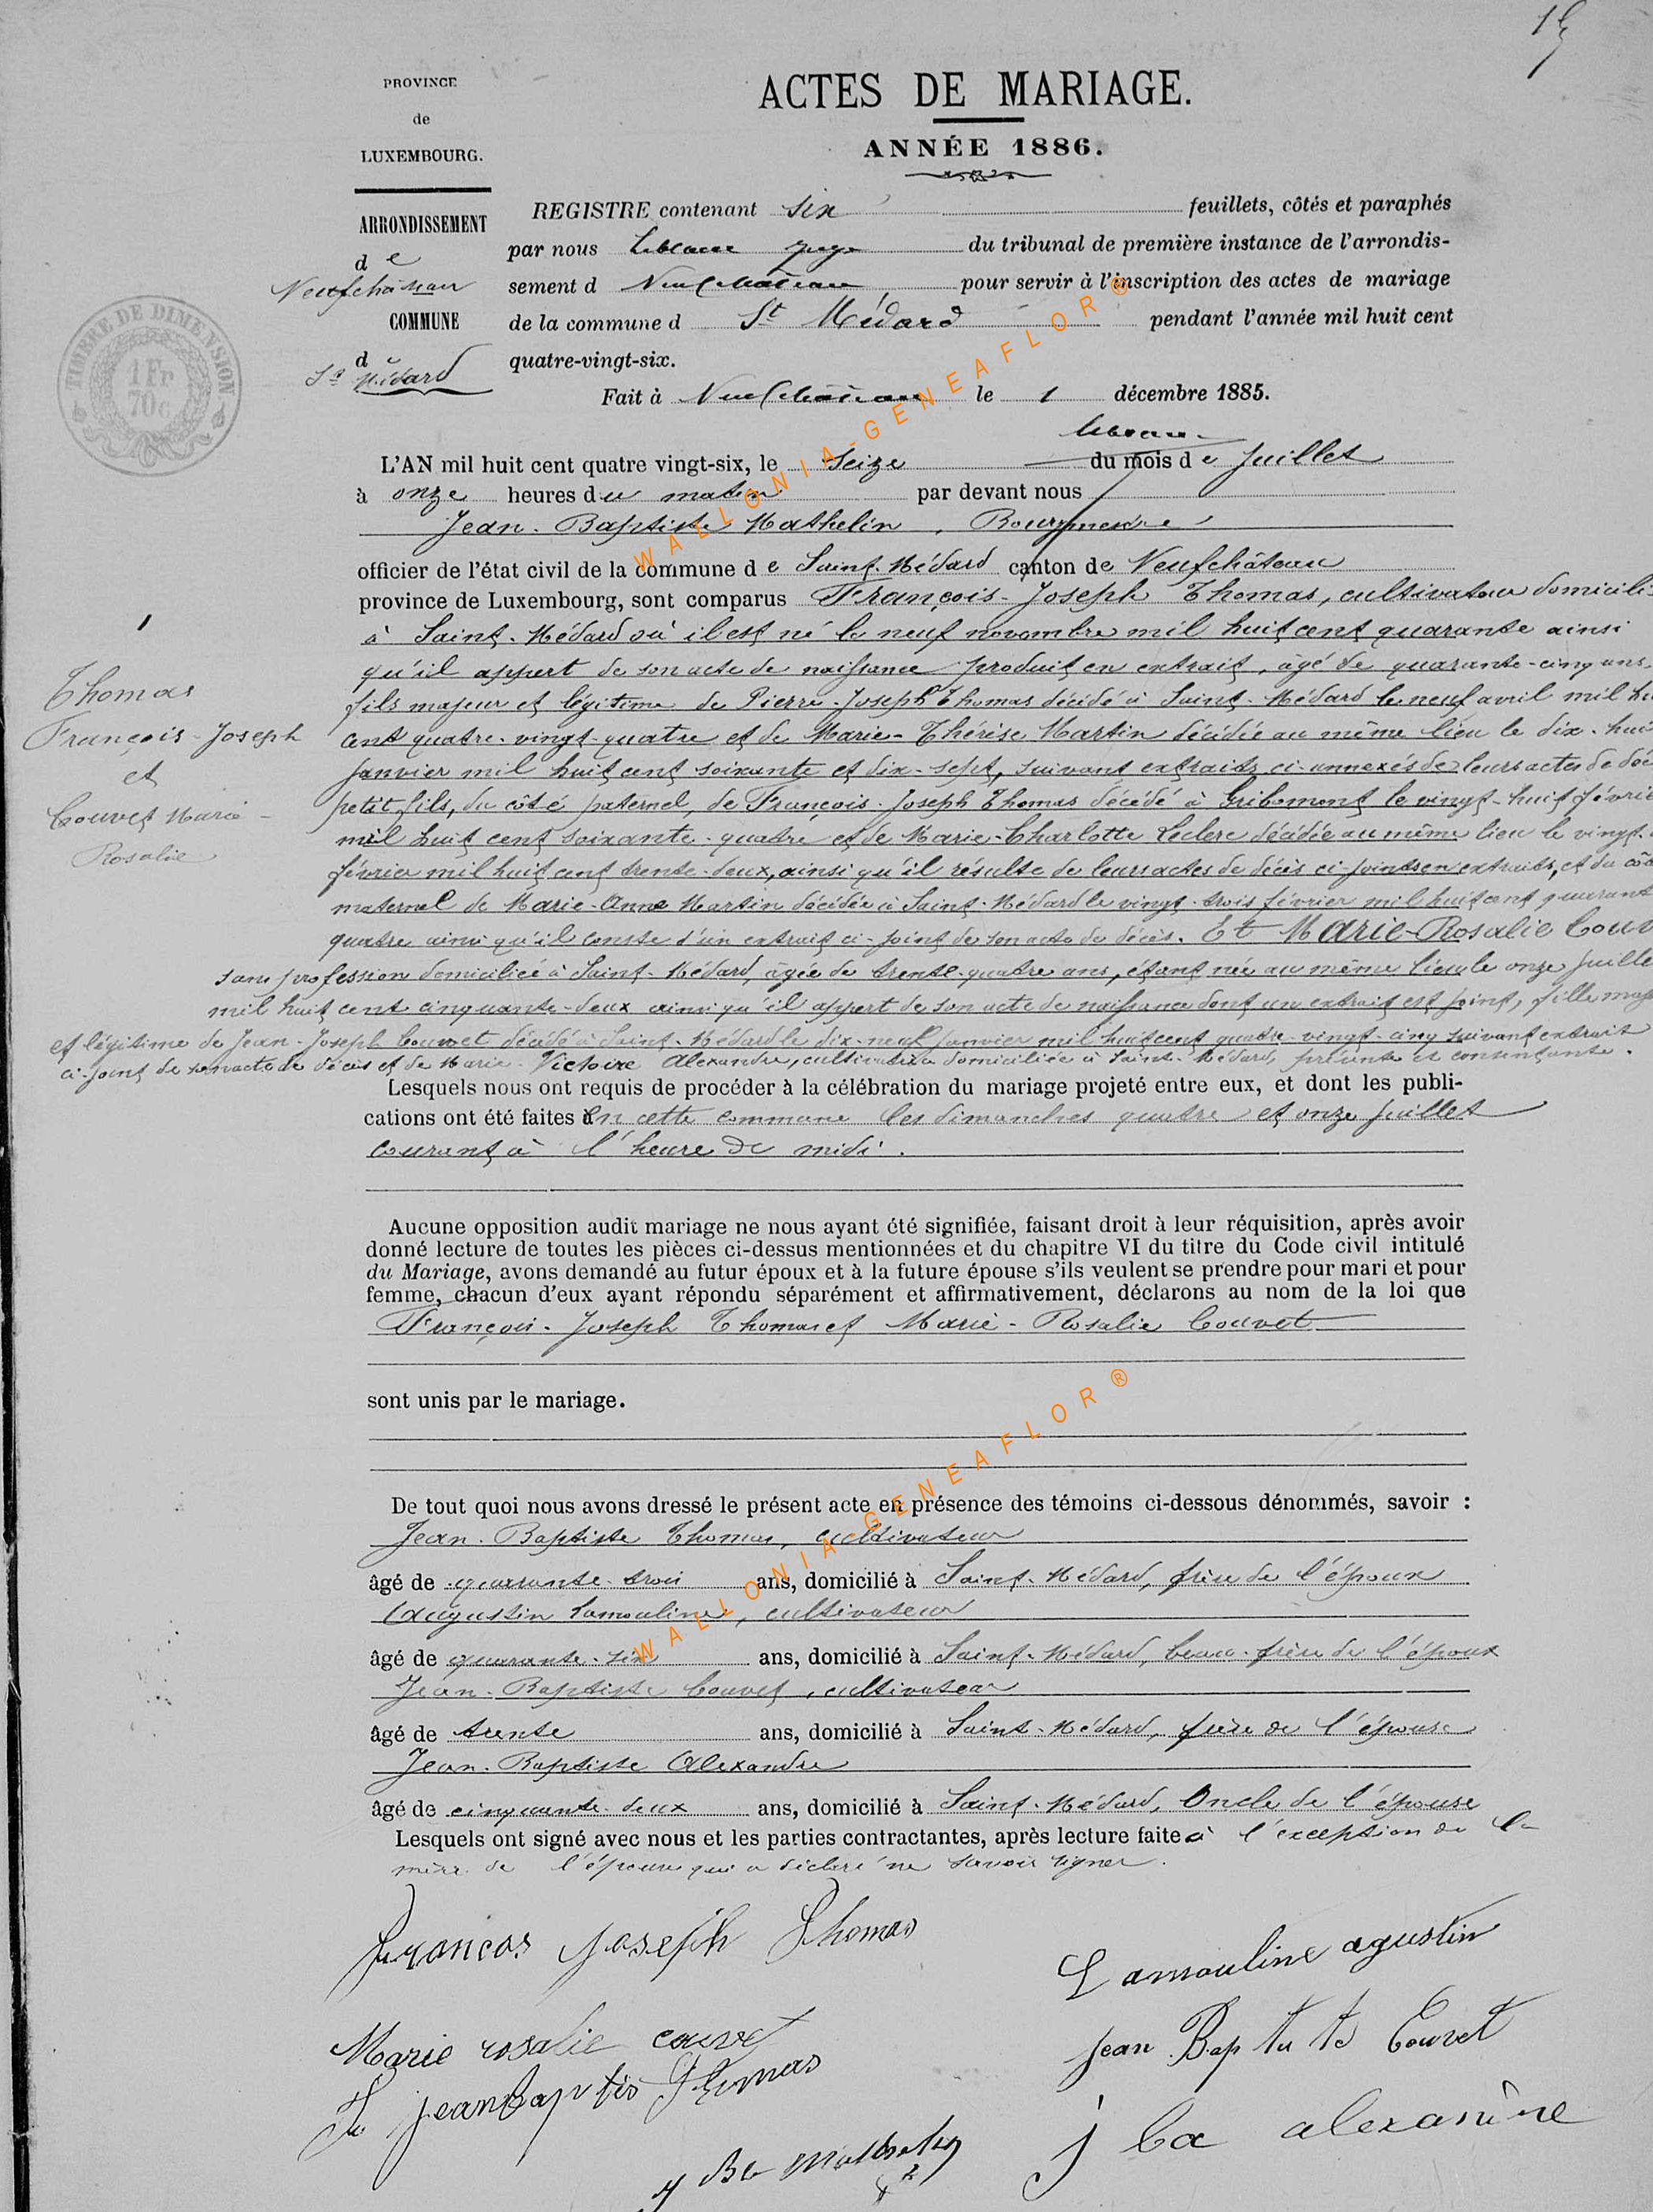 15
PROVINCE
de
LUXEMBOURG.
ARRONDISSEMENT
de
Neufchâteau
COMMUNE
d
St Médard
TIMBRE DE DIMENSION
1 Fr
70 c
ACTES DE MARIAGE.
ANNÉE 1886.
REGISTRE contenant six feuillets, côtés et paraphés
par nous Leblanc juge du tribunal de première instance de l'arrondis-
sement d Neufchâteau pour servir à l'inscription des actes de mariage
de la commune d St Médard pendant l'année mil huit cent
quatre-vingt-six.
Fait à Neufchâteau le 1 décembre 1885.
L'AN mil huit cent quatre vingt-six, le seize du mois de Juillet
à onze heures du matin par devant nous
Jean-Baptiste Mathelin, Bourgmestre
officier de l'état civil de la commune de Saint-Médard canton de Neufchâteau
province de Luxembourg, sont comparus François-Joseph Thomas, cultivateur domicili
à Saint-Médard où il est né le neuf novembre mil huit cent quarante ainsi
qu'il appert de son acte de naissance produit en extrait, âgé de quarante-cinq ans,
fils majeur et légitime de Pierre-Joseph Thomas décédé à Saint-Médard le neuf avril mil hu
cent quatre-vingt-quatre et de Marie-Thérèse Martin décédée au même lieu le dix-hui
janvier mil huit cent soixante et dix-sept, suivant extraits ci-annexés de leurs actes de déc
petit fils, du côté paternel, de François-Joseph Thomas décédé à Gribomont le vingt-huit févrie
mil huit cent soixante-quatre et de Marie-Charlotte Leclerc décédée au même lieu le vingt-
février mil huit cent trente-deux, ainsi qu'il résulte de leurs actes de décès ci-joints en extraits, et du cô
maternel de Marie-Anne Martin décédée à Saint-Médard le vingt-trois février mil huit cent quarant
quatre ainsi qu'il conste d'un extrait ci-joint de son acte de décès. Et Marie-Rosalie Couv
sans profession domiciliée à Saint-Médard, âgée de trente-quatre ans, étant née au même lieu le onze juille
mil huit cent cinquante-deux ainsi qu'il appert de son acte de naissance dont un extrait est joint, fille maj
et légitime de Jean-Joseph Couvet décédé à Saint-Médard le dix-neuf janvier mil huit cent quatre-vingt-cinq suivant extrait
ci-joint de son acte de décès et de Marie-Victoire Alexandre, cultivatrice domiciliée à Saint-Médard, présente et consentante.
1
Thomas
François-Joseph
et
Couvet Marie-
Rosalie
Lesquels nous ont requis de procéder à la célébration du mariage projeté entre eux, et dont les publi-
cations ont été faites en cette commune les dimanches quatre et onze Juillet
courant à l'heure de midi.
Aucune opposition audit mariage ne nous ayant été signifiée, faisant droit à leur réquisition, après avoir
donné lecture de toutes les pièces ci-dessus mentionnées et du chapitre VI du titre du Code civil intitulé
du Mariage, avons demandé au futur époux et à la future épouse s'ils veulent se prendre pour mari et pour
femme, chacun d'eux ayant répondu séparément et affirmativement, déclarons au nom de la loi que
François-Joseph Thomas et Marie-Rosalie Couvet
sont unis par le mariage.
De tout quoi nous avons dressé le présent acte en présence des témoins ci-dessous dénommés, savoir :
Jean-Baptiste Thomas, cultivateur
âgé de quarante-trois ans, domicilié à Saint-Médard, frère de l'époux
Augustin Lamouline, cultivateur
âgé de quarante-six ans, domicilié à Saint-Médard, beau-frère de l'époux
Jean-Baptiste Couvet, cultivateur
âgé de trente ans, domicilié à Saint-Médard, frère de l'épouse
Jean-Baptiste Alexandre
âgé de cinquante-deux ans, domicilié à Saint-Médard, Oncle de l'épouse
Lesquels ont signé avec nous et les parties contractantes, après lecture faite à l'exception de la
mère de l'épouse qui a déclaré ne savoir signer.
Francos joseph Thomas
Lamouline agustin
Marie rosalie couvet
jean Baptiste Couvet
jean baptis Thomas
j ba alexandre
J Bte Mathelin
WALLONIA-GENEAFLOR ®
WALLONIA-GENEAFLOR ®